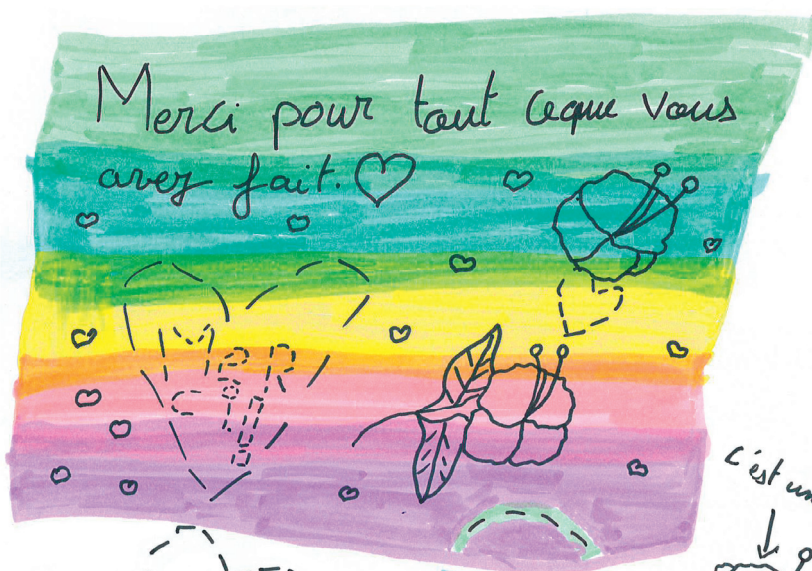 Merci pour tout ceque vous
avez fait.
MERCI
c'est un